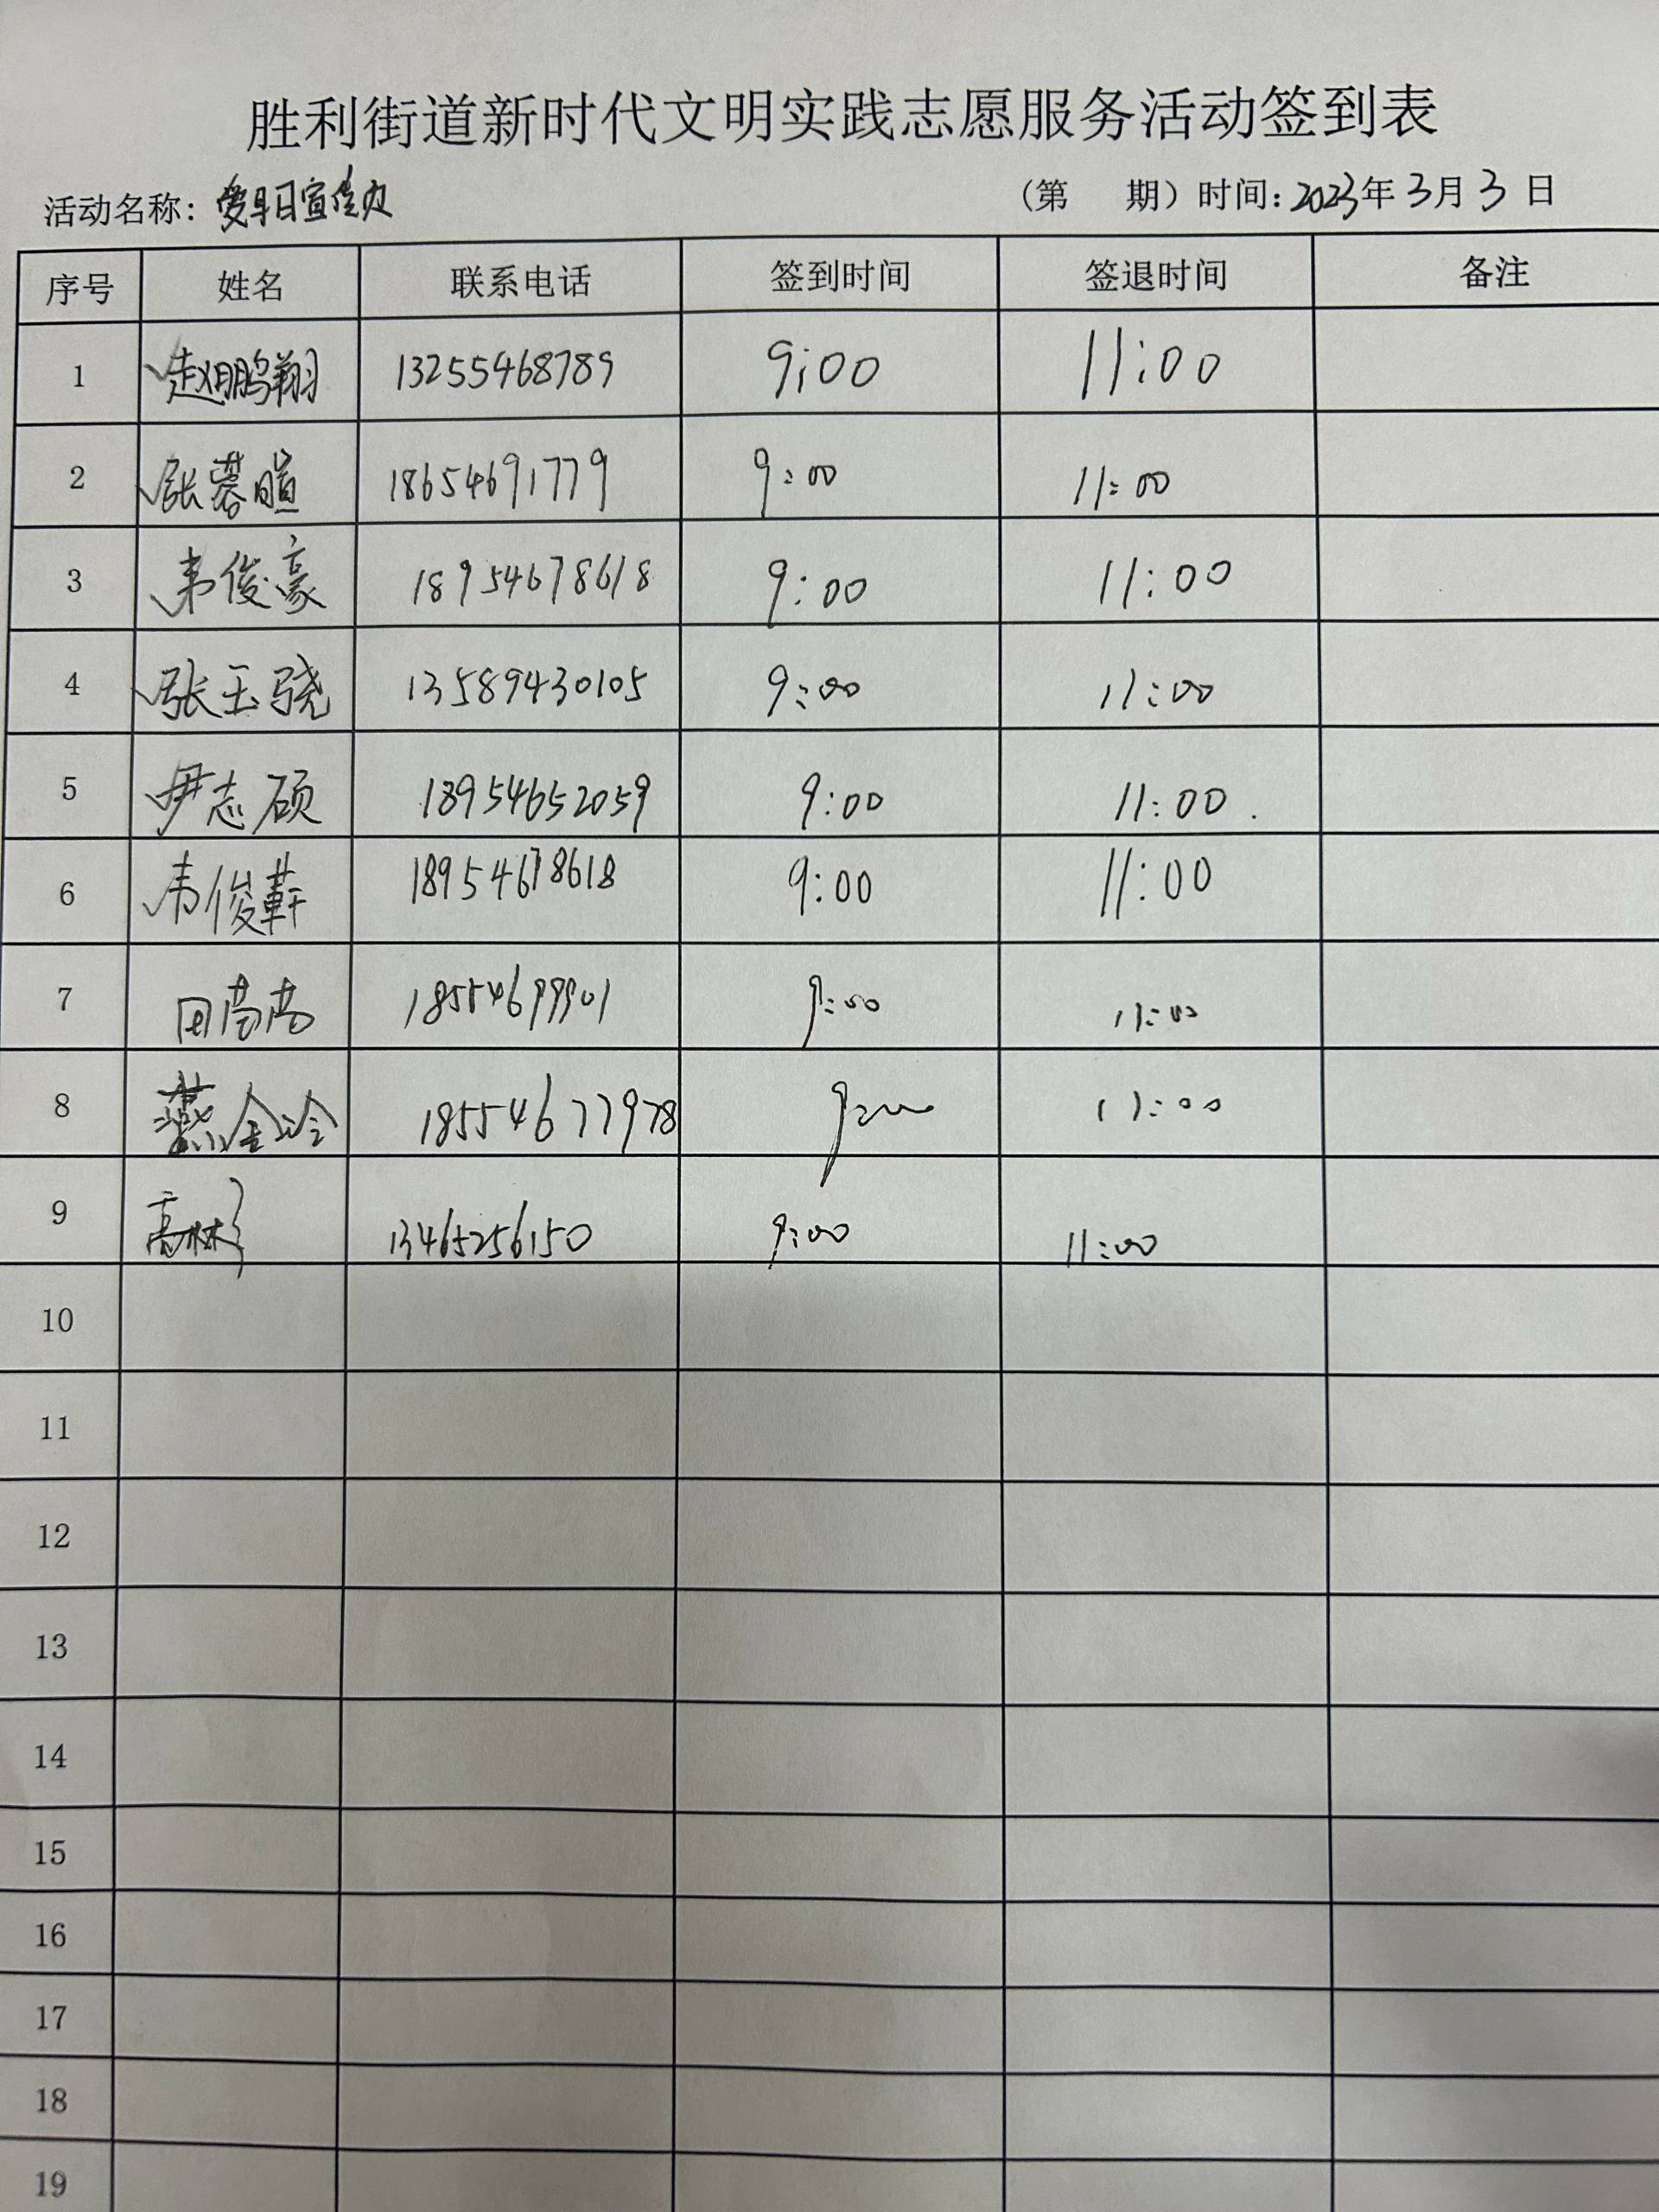 胜利街道新时代文明实践志愿服务活动签到表
活动名称：爱耳日宣传 （第 期）时间：2023年3月3日
序号 姓名 联系电话 签到时间 签退时间 备注
1 赵鹏翔 13255468789 9:00 11:00
2 张蓉暄 18654691779 9:00 11:00
3 韦俊豪 18954678618 9:00 11:00
4 张玉骁 13589430105 9:00 11:00
5 尹志硕 18954652059 9:00 11:00
6 韦俊 18954678618 9:00 11:00
7 田 18554699901 9:00 11:00
8 燕金冷 18554677978 9:00 11:00
9 高彬 13465256150 9:00 11:00
10
11
12
13
14
15
16
17
18
19